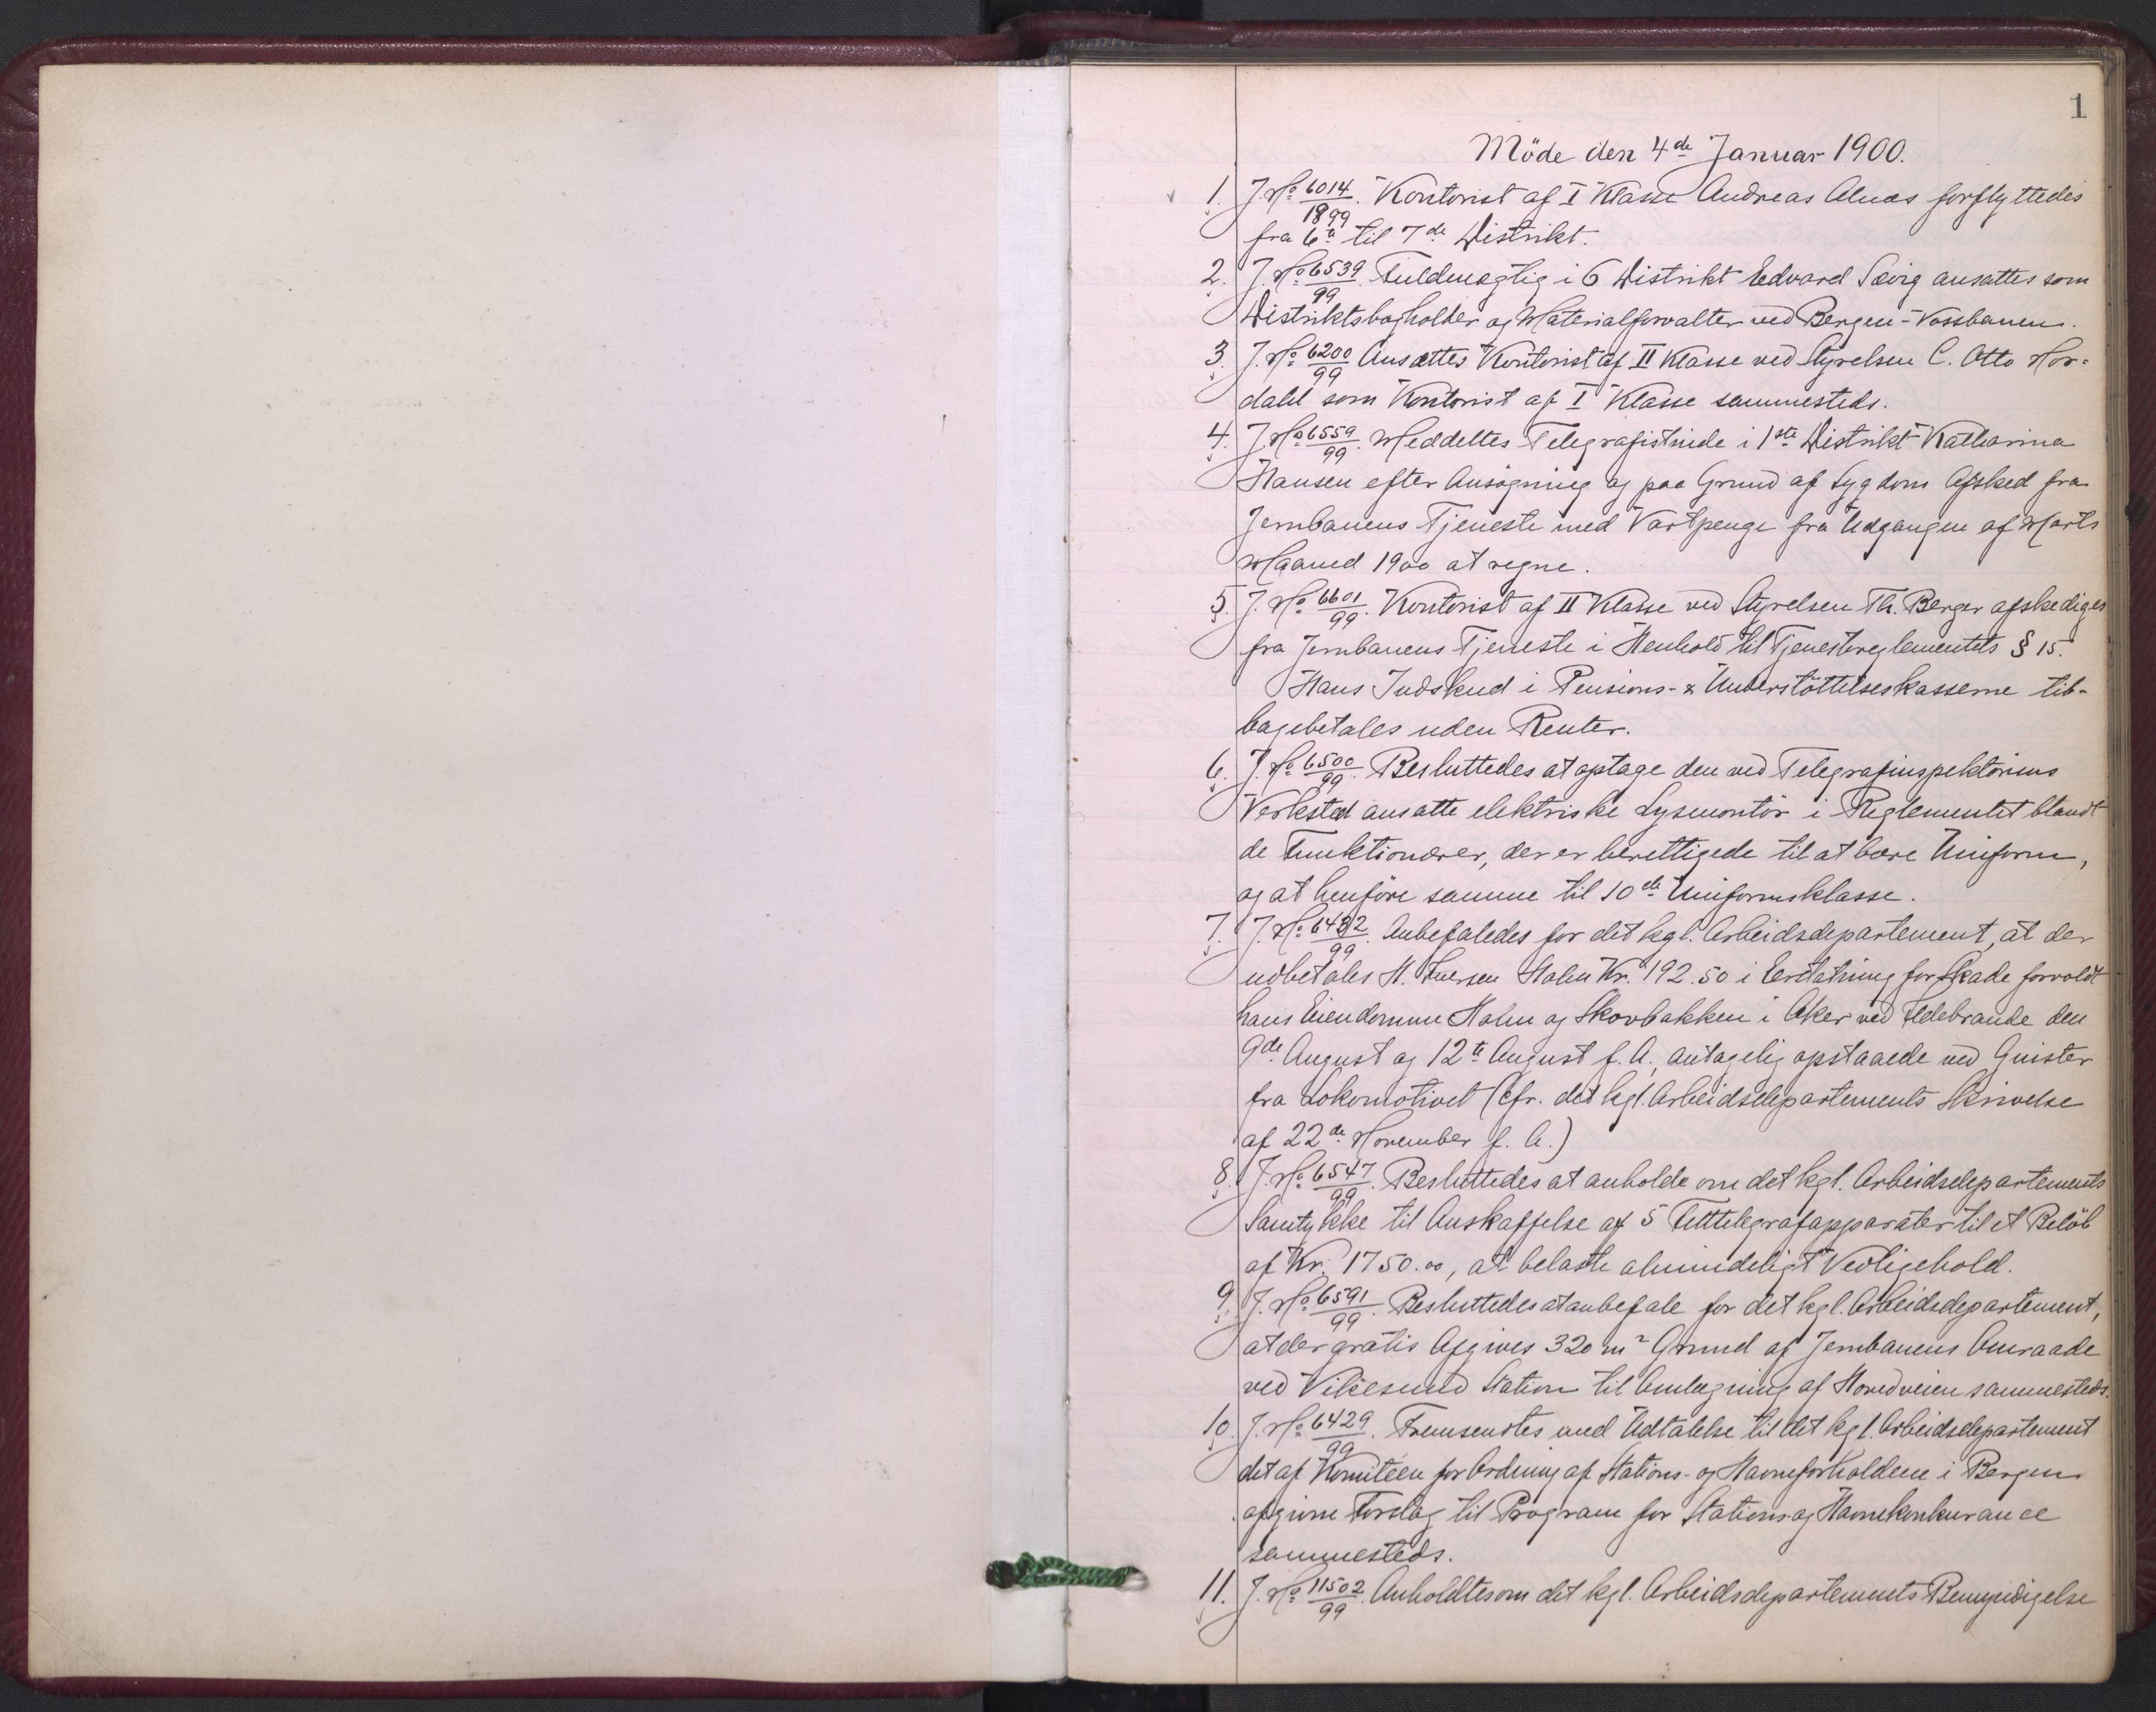 1
Möde den 4de Januar 1900.
1. J. No 6014/1899. Kontorist af I Klasse Andreas Alnæs forflyttedes
fra 6te til 7de Distrikt.
2. J. No 6539/99. Fuldmægtig i 6 Distrikt Edvard Særig ansattes som
Distriktsbogholder og Materialforvalter ved Bergen-Vossbanen.
3. J. No 6200/99 Ansættes Kontorist af II Klasse ved Styrelsen C. Otto Nor-
dahl som Kontorist af I Klasse sammesteds.
4. J. No 6559/99. Meddeltes Telegrafistinde i 1ste Distrikt Katharina
Hansen efter Ansögning og paa Grund af Sygdom Afsked fra
Jernbanens Tjeneste med Vartpenge fra Udgangen af Marts
Maaned 1900 at regne.
5. J. No 6601/99. Kontorist af II Klasse ved Styrelsen Th. Berger afskediges
fra Jernbanens Tjeneste i Henhold til Tjenestereglementets § 15.
Hans Indskud i Pensions- & Understöttelseskasserne til-
bagebetales uden Renter.
6. J. No 6500/99. Besluttedes at optage den ved Telegrafinspektörens
Verksted ansatte elektriske Lysmontör i Reglementet blandt
de Funktionærer, der er berettigede til at bære Uniform,
og at henföre samme til 10de Uniformsklasse.
7. J. No 6432/99. Anbefaledes for det kgl. Arbeidsdepartement, at der
udbetales H. Iversen Holm Kr. 192.50 i Erstatning for Skade forvoldt
hans Eiendomme Holm og Skovbakken i Aker ved Ildebrande den
9de August og 12te August f. A., antagelig opstaaede ved Gnister
fra Lokomotivet (Cfr. det kgl. Arbeidsdepartements Skrivelse
af 22de November f. A.)
8. J. No 6547/99. Besluttedes at anholde om det kgl. Arbeidsdepartements
Samtykke til Anskaffelse af 5 Felttelegrafapparater til et Belöb
af Kr. 1750.00, at belaste almindeligt Vedligehold.
9. J. No 6591/99. Besluttedes at anbefale for det kgl. Arbeidsdepartement,
at der gratis Afgives 320 m² Grund af Jernbanens Omraade
ved Vikesund Station til Omlægning af Hovedveien sammesteds.
10. J. No 6429/99. Fremsendtes med Udtalelse til det kgl. Arbeidsdepartement
det af Komiteen for Ordning af Stations- og Havneforholdene i Bergen
afgivne Forslag til Program for Stations- og Havnekonkurance
sammesteds.
11. J. No 11502/99. Anholdtes om det kgl. Arbeidsdepartements Bemyndigelse